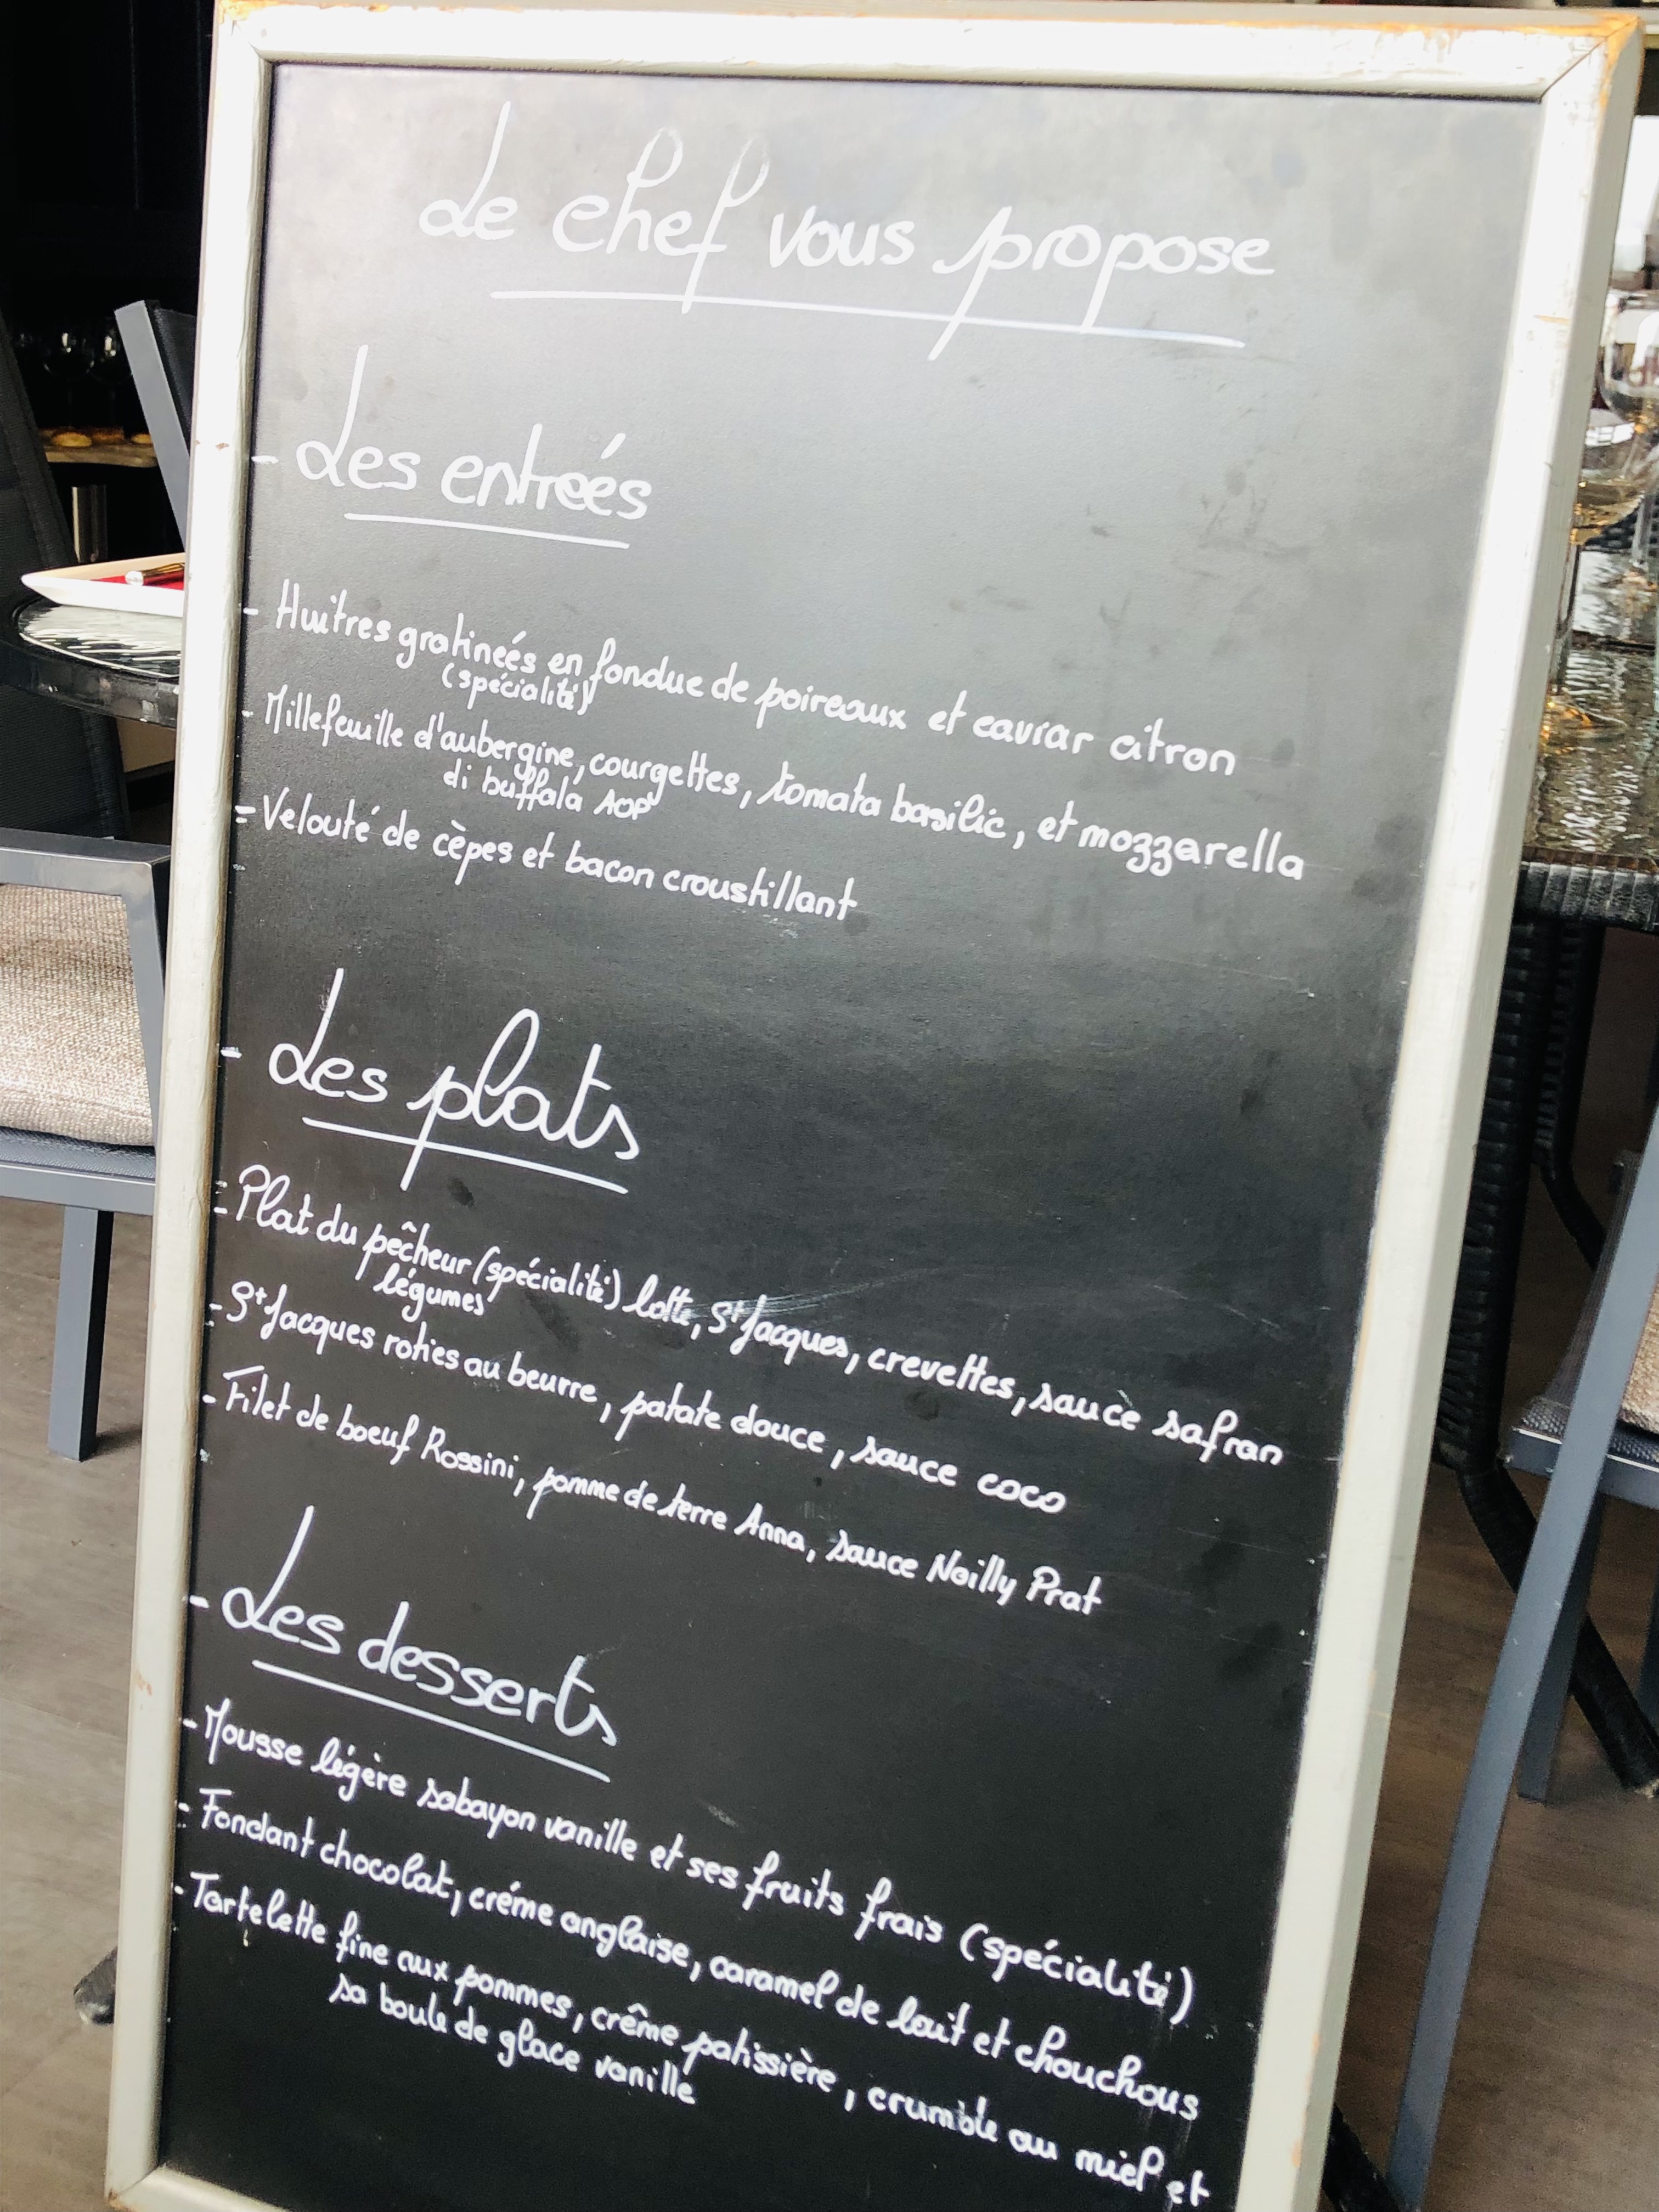 Le chef vous propose
- Les entreés
- Huitres gratineés en fondue de poireaux et caviar citron
(spécialité)
- Millefeuille d'aubergine, courgettes, tomata basilic, et mozzarella
di buffala AOP
- Velouté de cèpes et bacon croustillant
- Les plats
- Plat du pêcheur (spécialité) lotte, St Jacques, crevettes, sauce safran
légumes
- St Jacques roties au beurre, patate douce, sauce coco
- Filet de boeuf Rossini, pomme de terre Anna, sauce Noilly Prat
- Les desserts
- Mousse légère sabayon vanille et ses fruits frais (spécialité)
- Fondant chocolat, créme anglaise, caramel de lait et chouchous
- Tartelette fine aux pommes, crême patissière, crumble au miel et
sa boule de glace vanille